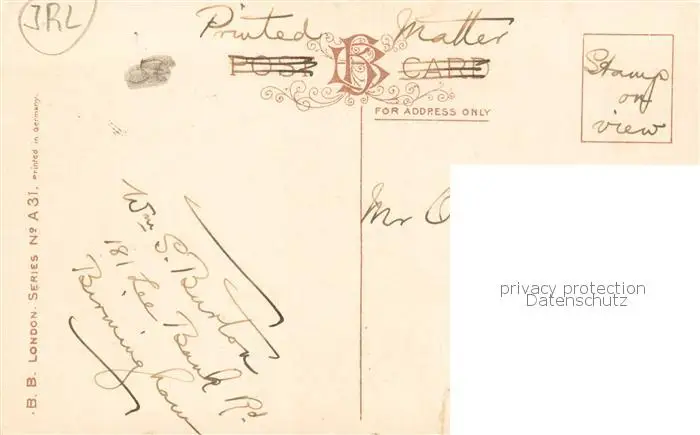 JRL
Printed Matter
POST BB CARD
FOR ADDRESS ONLY
Stamp
on
view
Mr
Wm S. Burton
181 Lee Bank Rd
Birmingham
B. B. LONDON. SERIES No A31. Printed in Germany.
privacy protection
Datenschutz